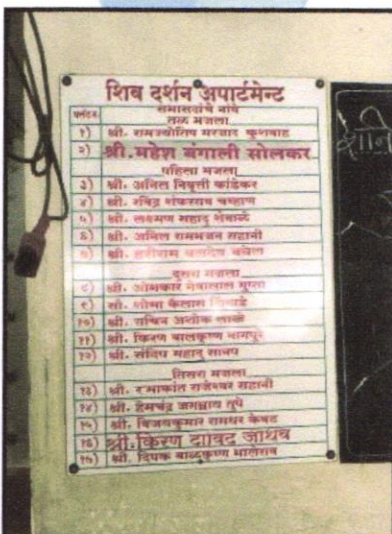 शिव दर्शन अपार्टमेन्ट
सभासदांचे नांवे
तळ मजला
१) श्री. रामज्योतिष मरजाद कुशवाह
२) श्री. महेश बंगाली सोलकर
पहिला मजला
३) श्री. अनिल निवृत्ती कांडेकर
४) श्री. रविंद्र शंकरराव चव्हाण
५) श्री. लक्ष्मण महादु शेवाळे
६) श्री. अनिल रामभजन सहानी
७) श्री. हरीराम बलदेव बघेल
दुसरा मजला
८) श्री. ओमकार मेवालाल गुप्ता
९) सौ. शोभा कैलास
१०) श्री. सचिन अशोक लाखे
११) श्री. किरण बालकृष्ण नागपूरे
१२) श्री. संदिप महादु सानप
तिसरा मजला
१३) श्री. रमाकांत राजेश्वर सहानी
१४) श्री. हेमचंद्र जगन्नाथ तुपे
१५) श्री. विजयकुमार रामधर केवट
१६) श्री. किरण दाविद जाधव
१७) श्री. दिपक बाळकृष्ण भालेराव